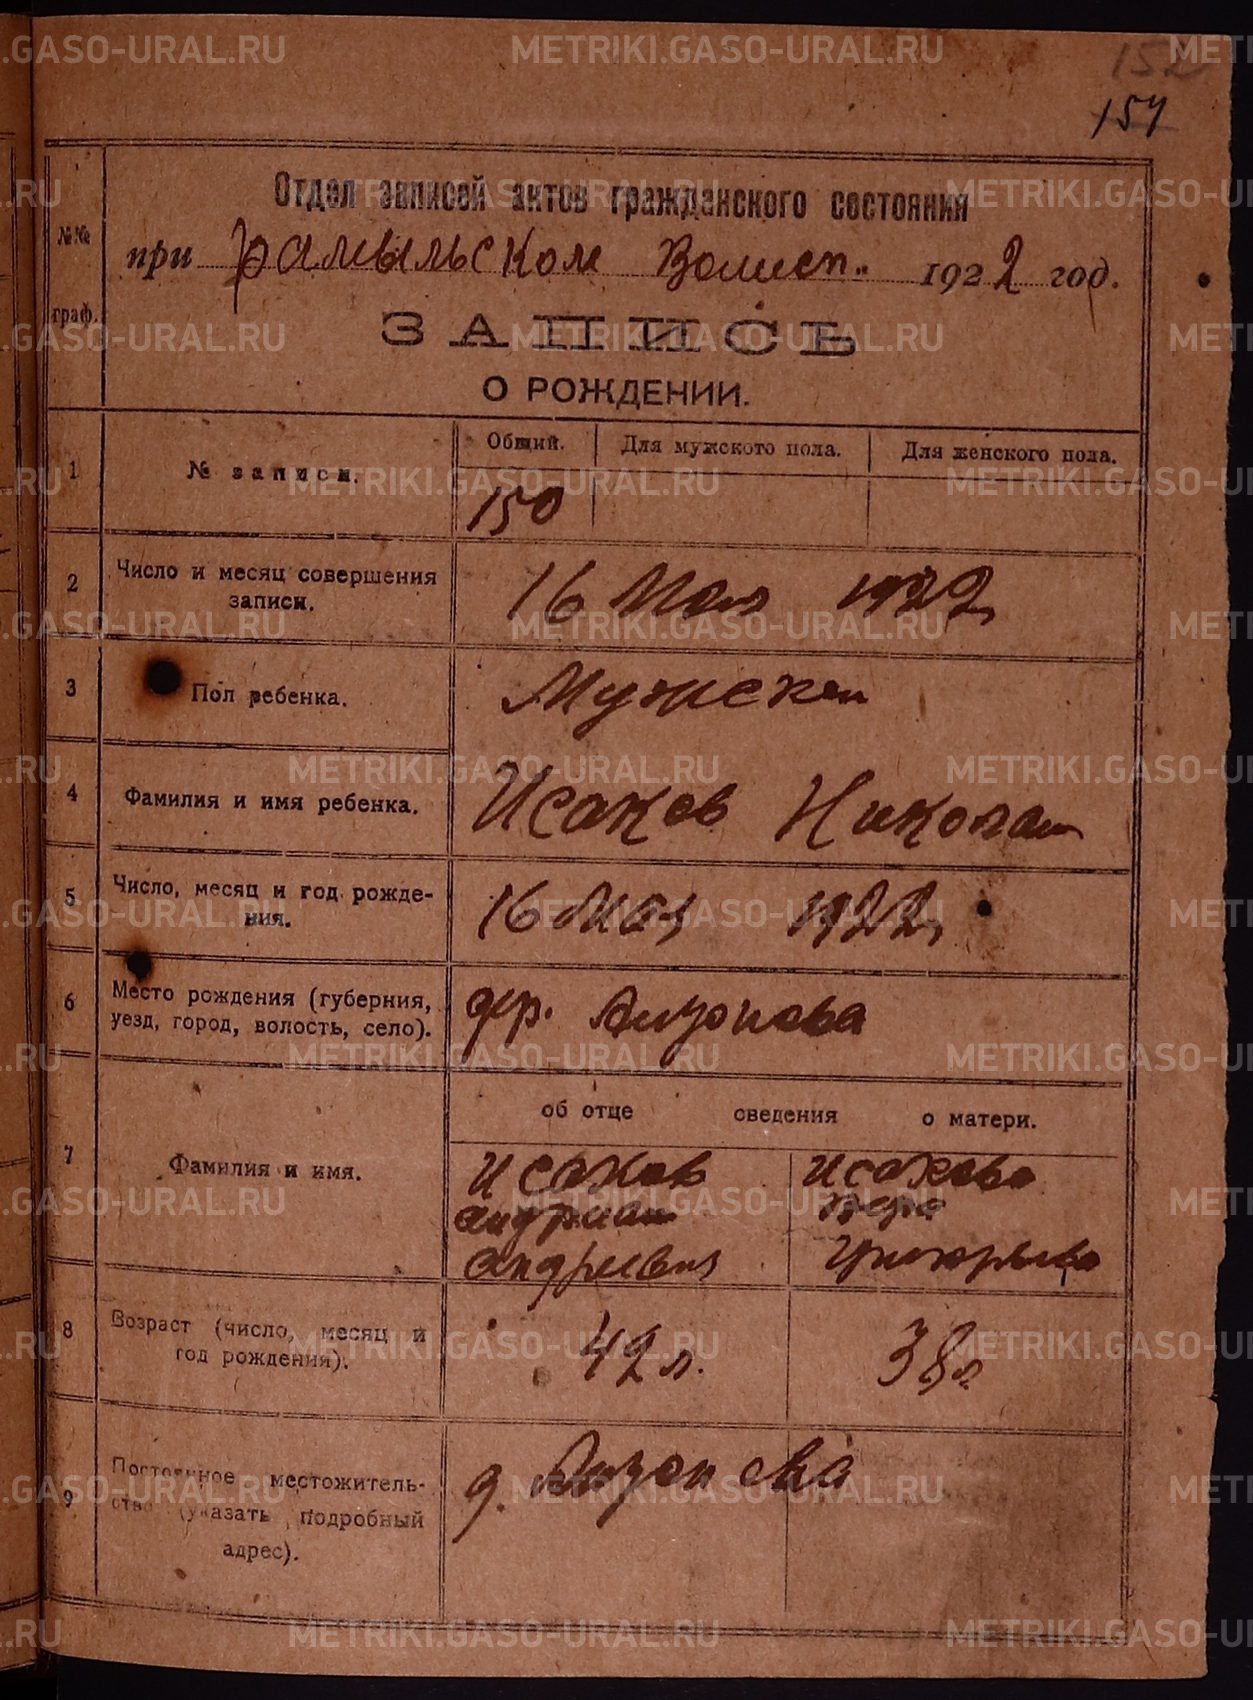 152
154
№№
граф.
Отдел записей актов гражданского состояния
при Рамыльском Волисп. 1922 год.
ЗАПИСЬ
О РОЖДЕНИИ.
1
№ записи.
Общий. Для мужского пола. Для женского пола.
150
2
Число и месяц совершения
записи.
16 Мая 1922
3
Пол ребенка.
Мужской
4
Фамилия и имя ребенка.
Исаков Николай
5
Число, месяц и год рожде-
ния.
16 Мая 1922
6
Место рождения (губерния,
уезд, город, волость, село).
дер.
об отце сведения о матери.
7
Фамилия и имя.
Исаков
Андриан
Андреевич
Исакова
Григорьева
8
Возраст (число, месяц и
год рождения).
42 л.
38 л
9
Постоянное местожитель-
ство (указать подробный
адрес).
д.
METRIKI.GASO-URAL.RU